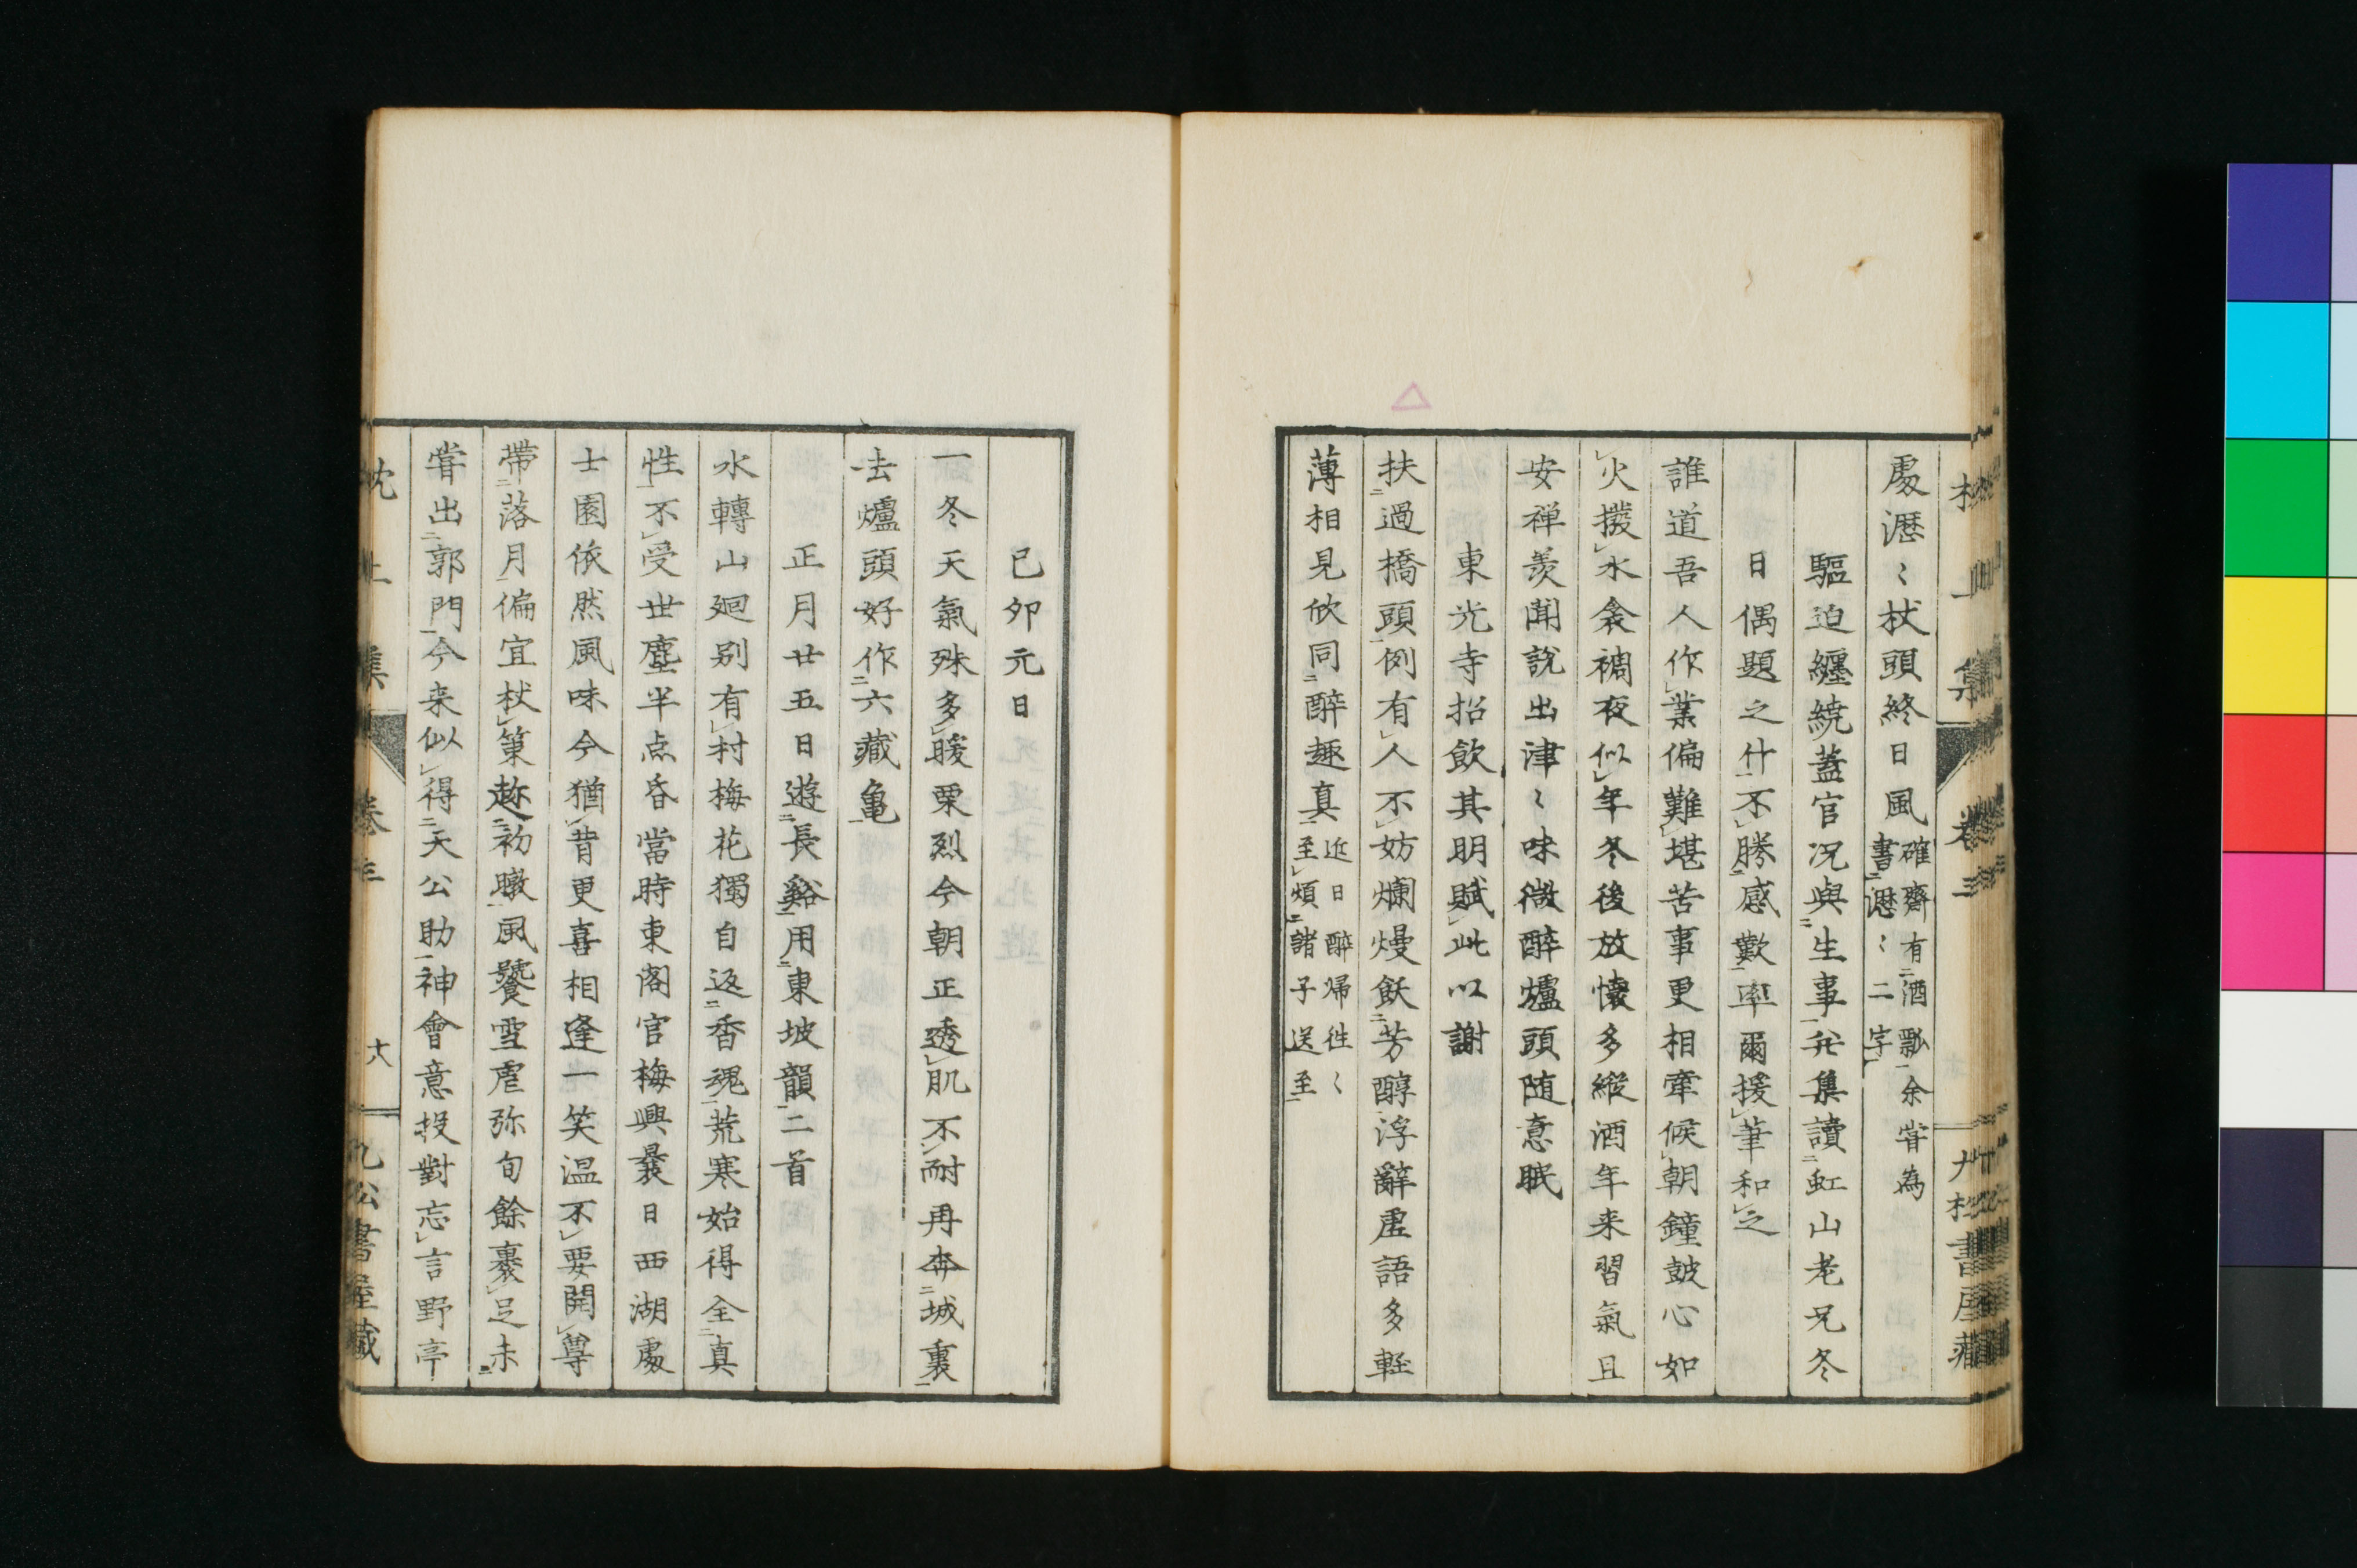 處瀝〻杖頭終日風
確齋有酒瓢余甞為
書瀝〻二字
驅迫纏繞蓋官况與生事弁集讀虹山老兄冬
日偶題之什不勝感歎率爾援筆和之
誰道吾人作業偏難堪苦事更相牽候朝鐘皷心如
火撥水衾裯夜似年冬後放懷多縱酒年来習氣且
安禅羨聞說出津〻味微醉爐頭随意眠
東光寺招飲其明賦此以謝
扶過橋頭例有人不妨爛熳飫芳醇浮辭虚語多軽
薄相見欣同醉趣真
近日醉帰徃〻
至煩諸子送至
己卯元日
一冬天氣殊多暖栗烈今朝正透肌不耐再奔城裏
去爐頭好作六藏亀
正月廿五日遊長谿用東坡韻二首
水轉山廻别有村梅花獨自返香魂荒寒始得全真
性不受世塵半点昏當時東阁官梅興曩日西湖處
士園依然風味今猶昔更喜相逢一笑温不要開尊
帶落月偏宜杖策趂初暾風饕雪虐弥旬餘裹足未
甞出郭門今来似得天公助神會意投對忘言野亭
枕上集 卷三 十八 九松書屋藏